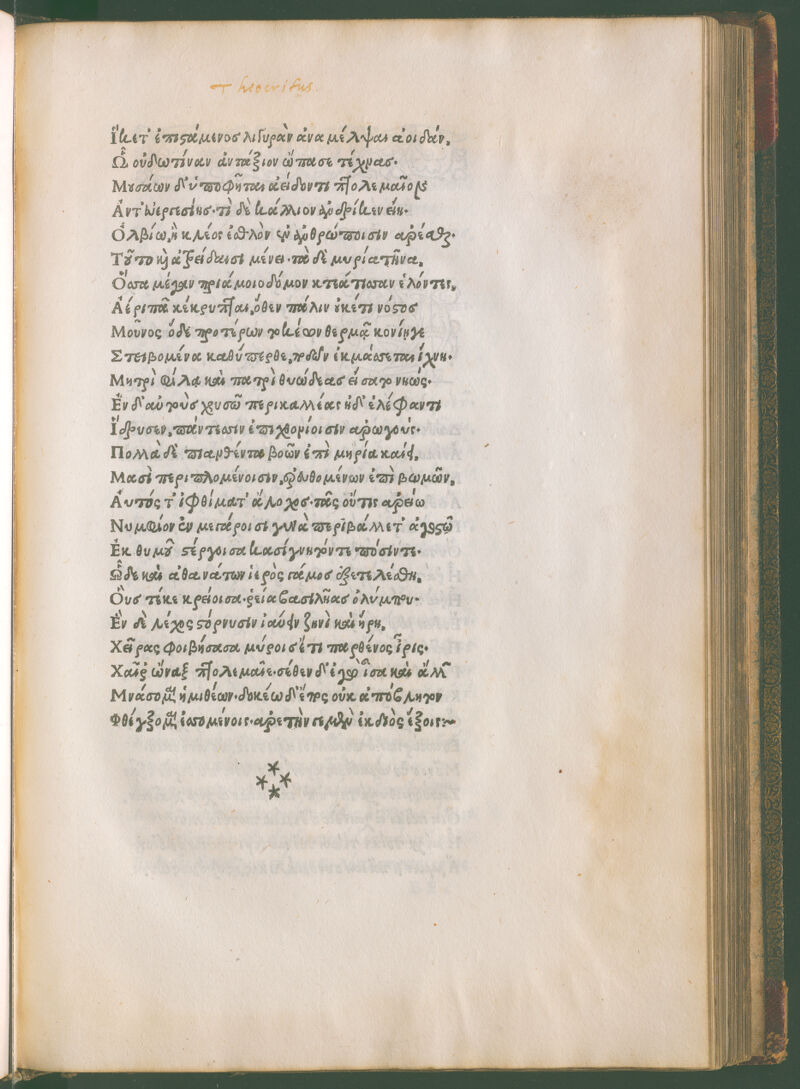 Theocritus.
Ἵκετ' ἐπιστάμενος λιγυρὰν ἀνα μέλψαι ἀοιδάν,
Ὧ οὐ δωτίναν ἀντάξιον ὤπασε τέχνας·
Μουσάων δ' ὑποφῆται ἀείδοντι πτολεμαῖον
Ἀντ' εὐεργεσίης· τί δὲ κάλλιον ἀνδρί κεν εἴη·
Ὀλβίω, ἢ κλέος ἐσθλὸν ἐν ἀνθρώποισιν ἀρέσθαι·
Τοῦτο καὶ ἀτρείδαισι μένει· τὰ δὲ μυρία τῆνα,
Ὅσσα μέγαν πριάμοιο δόμον κτεάτισσαν ἑλόντες,
Ἀέρι πᾶ κέκρυπται, ὅθεν πάλιν οὐκέτι νόστος
Μοῦνος ὅδε προτέρων τοκέων θερμᾶ κονίῃ γε
Στειβομένα καθύπερθε, ποδῶν ἐκμάσσεται ἴχνη·
Μητρὶ φίλᾳ καὶ πατρὶ θυώδεας εἵσατο νηώς·
Ἐν δ' αὐτοὺς χρυσῶ περικαλλέας ἠδ' ἐλέφαντι
Ἵδρυσεν, πάντεσσιν ἐπιχθονίοισιν ἀρωγούς·
Πολλὰ δὲ πιανθέντα βοῶν ἐπὶ μηρία καίει,
Μασὶ περιπλομένοισιν, ἐρευθομένων ἐπὶ βωμῶν,
Αὐτός τ' ἰφθίμα τ' ἄλοχος· τᾶς οὔτις ἀρείω
Νυμφίον ἐν μεγάροισι γυνὰ περιβάλλετ' ἀγοστῶ
Ἐκ θυμοῦ στέργοισα κασίγνητόν τε πόσίν τε·
Ὧδε καὶ ἀθανάτων ἱερὸς γάμος ἐξετελέσθη,
Οὓς τέκε κρείοισα ῥεία βασιλῆας ὀλύμπου·
Ἓν δὲ λέχος στόρνυσιν ἰαύειν ζηνὶ καὶ ἥρῃ,
Χεῖρας φοιβήσασα μύροις ἔτι παρθένος ἶρις·
Χαῖρε ὦναξ πτολεμαῖε· σέθεν δ' ἐγὼ ἶσα καὶ ἄλλων
Μνάσομαι ἡμιθέων· δοκέω δ' ἔπος οὐκ ἀπόβλητον
Φθέγξομαι ἐσσομένοις· ἀρετὴν γε μὲν ἐκ διὸς ἕξοις:~